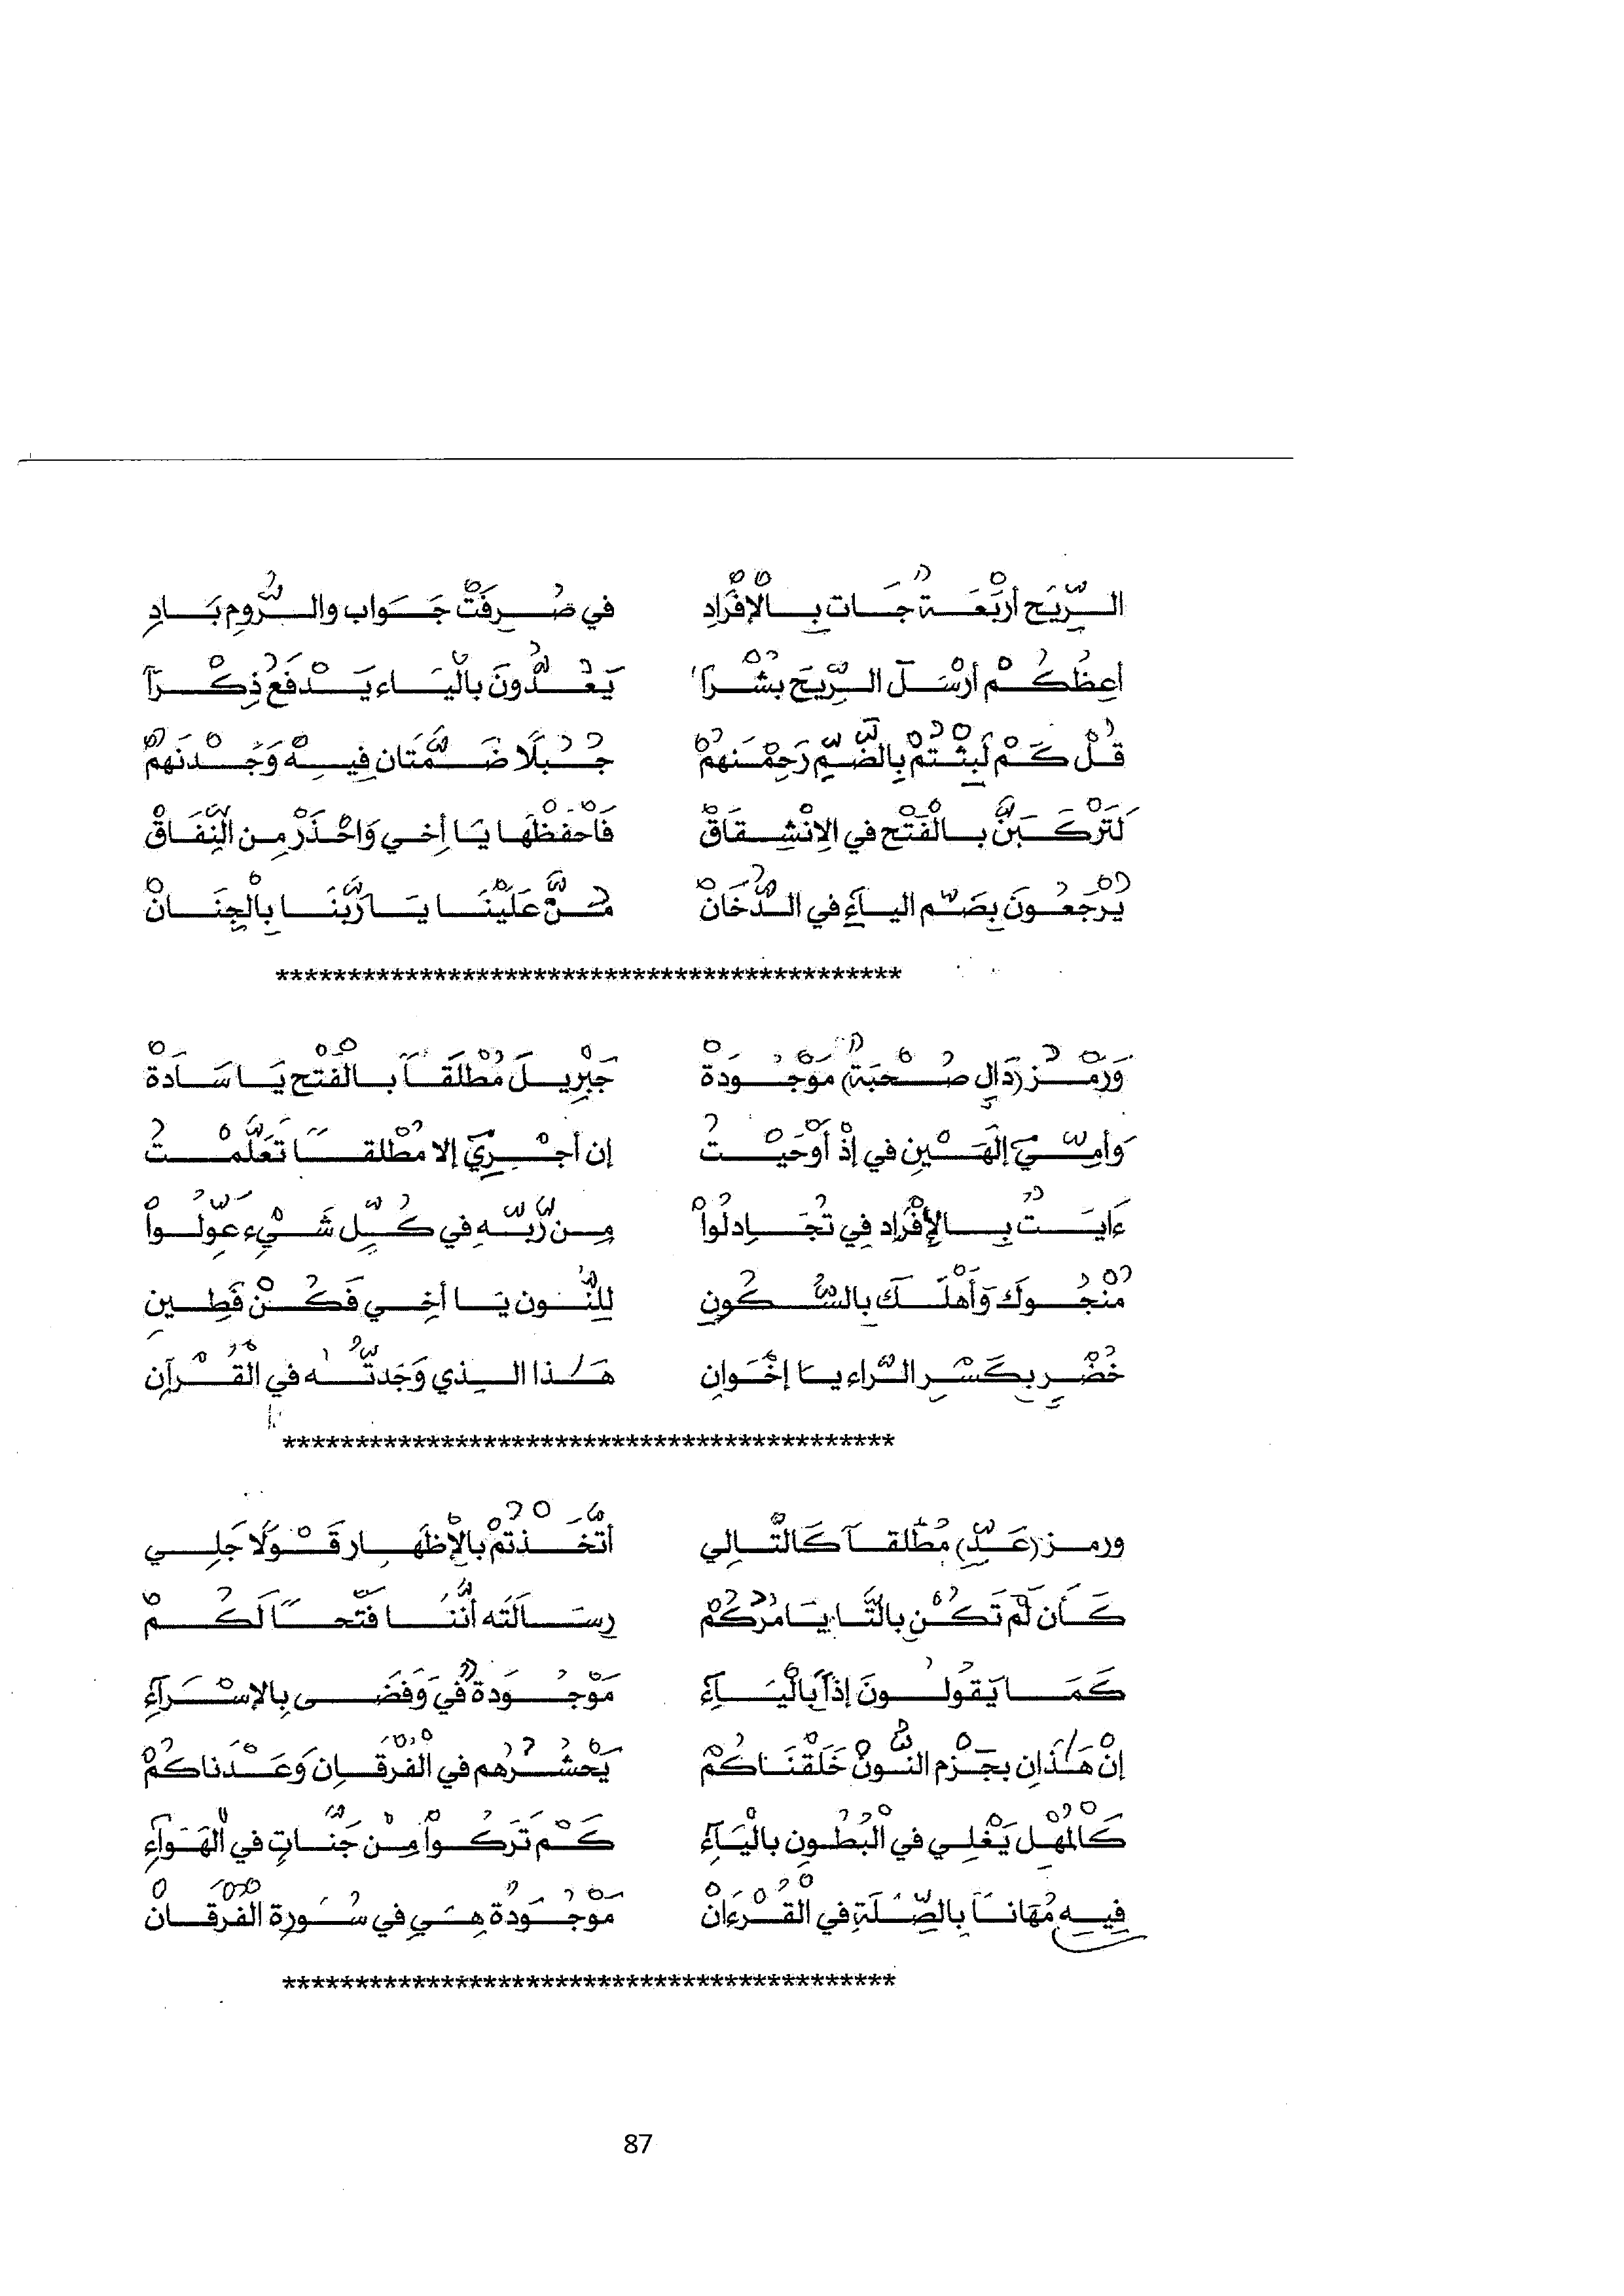 الرِّيَح أرْبَعَة جَات بالإفْرَادِ في صُرِفَتْ جَوَاب والرُّومِ بَادِ
أعِظُكُمْ أرْسَلَ الرِّيَحَ بشْرًا يَعُدُّونَ بالْيَاء يَدْفَعُ ذِكْرًا
قُلْ كَمْ لَبِثْتُمْ بِالضَّمِّ رَحِمْنَهُمْ جُبُلًا ضَمَّتَان فِيهْ وَجَدْنَهُمْ
لَتَرْكَبَنَّ بالْفَتْح في الإنْشِقَاقْ فَاحْفَظْهَا يَا أخِي وَاحْذَرْ مِن النِّفَاقْ
يُرْجَعُونَ بِضَمّ اليآءِ في الدُّخَانْ مُنَّ عَلَيْنَا يَا رَبَّنَا بِالْجِنَانْ
*******************************************
وَرَمْزُ (دَالِ صُحْبَةٌ) مَوْجُودَةْ جَبْرِيلَ مُطْلَقًا بالْفَتْح يَا سَادَةْ
وَأمِّيَ إلَهَيْنِ في إذْ أوْحَيْتُ إن أجْرِيَ إلا مُطْلقًا تَعَلَّمْتُ
ءَايَتُ بِالإفْرَادِ فِي تُجَادِلُواْ مِن رَّبِّهِ في كُلِّ شَيْءٍ عَوِّلُواْ
مُنْجُوكَ وَأَهْلَكَ بالسُّكُونِ لِلنُّون يَا أخِي فَكُنْ فَطِينِ
خُضْرٍ بِكَسْرِ الرَّاء يَا إخْوَانِ هَذا الذي وَجَدتُّهُ في الْقُرْآنِ
******************************************
ورمز (عَدٍّ) مُطْلَقًا كَالتَّالِي أتَّخَذْتُمْ بالإِظْهَار قَوْلًا جَلِي
كَأن لَّمْ تَكُنْ بالتَّا يَامُرُكُمْ رِسَالَتَه أنَّنَا فَتْحًا لَكُمْ
كَمَا يَقُولُونَ إذًا بالْيَآءِ مَوْجُودَةٌ فِي وَقَضَى بِالإسْرَآءِ
إنْ هَذَانِ بجَزْم النُّونْ خَلَقْنَاكُمْ يَحْشُرُهُم في الْفُرْقَانِ وَعَدْنَاكُمْ
كَالْمُهْلِ يَغْلِي في الْبُطُونِ بالْيَآءِ كَمْ تَرَكُواْ مِنْ جَنَّاتٍ في الْهَوَآءِ
فِيهِ مُهَانًا بِالصِّلَةِ في الْقُرْءَانْ مَوْجُودَةٌ هِيَ في سُورَةِ الْفُرْقَانْ
******************************************
87